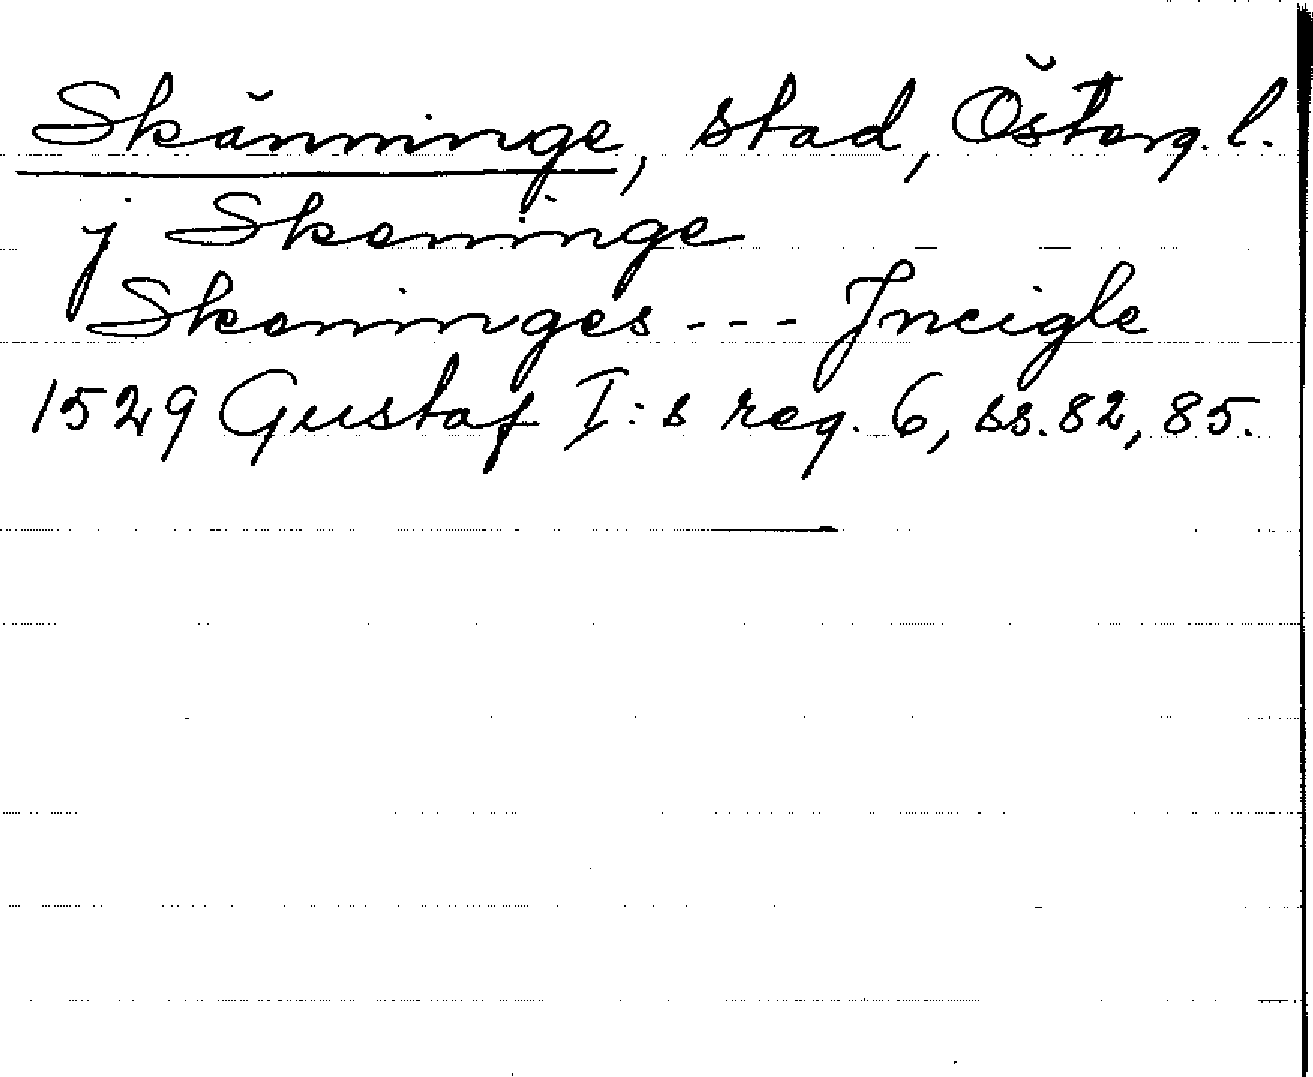 Skänninge, stad, Österg. l.
j Skeninge
Skeninges --- Jncigle
1529 Gustaf I:s reg. 6, ss. 82, 85.